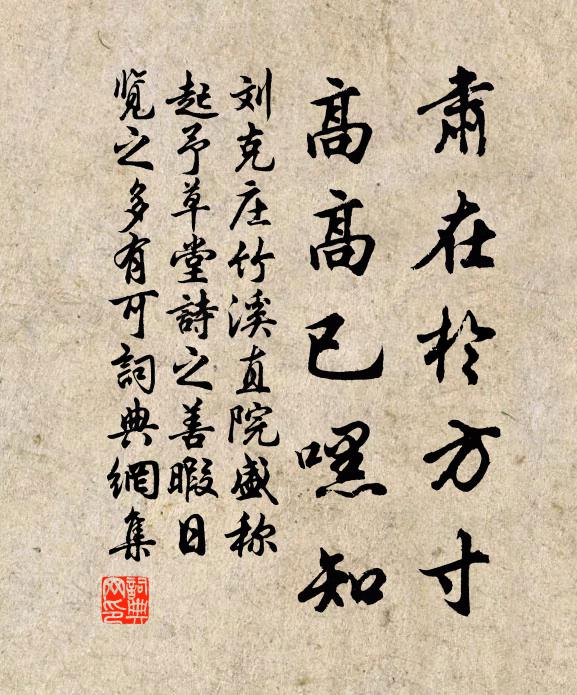 肃在於方寸
高高已嘿知
刘克庄竹溪直院盛称
起予草堂詩之善暇日
览之多有可詞典網集
詞典网印